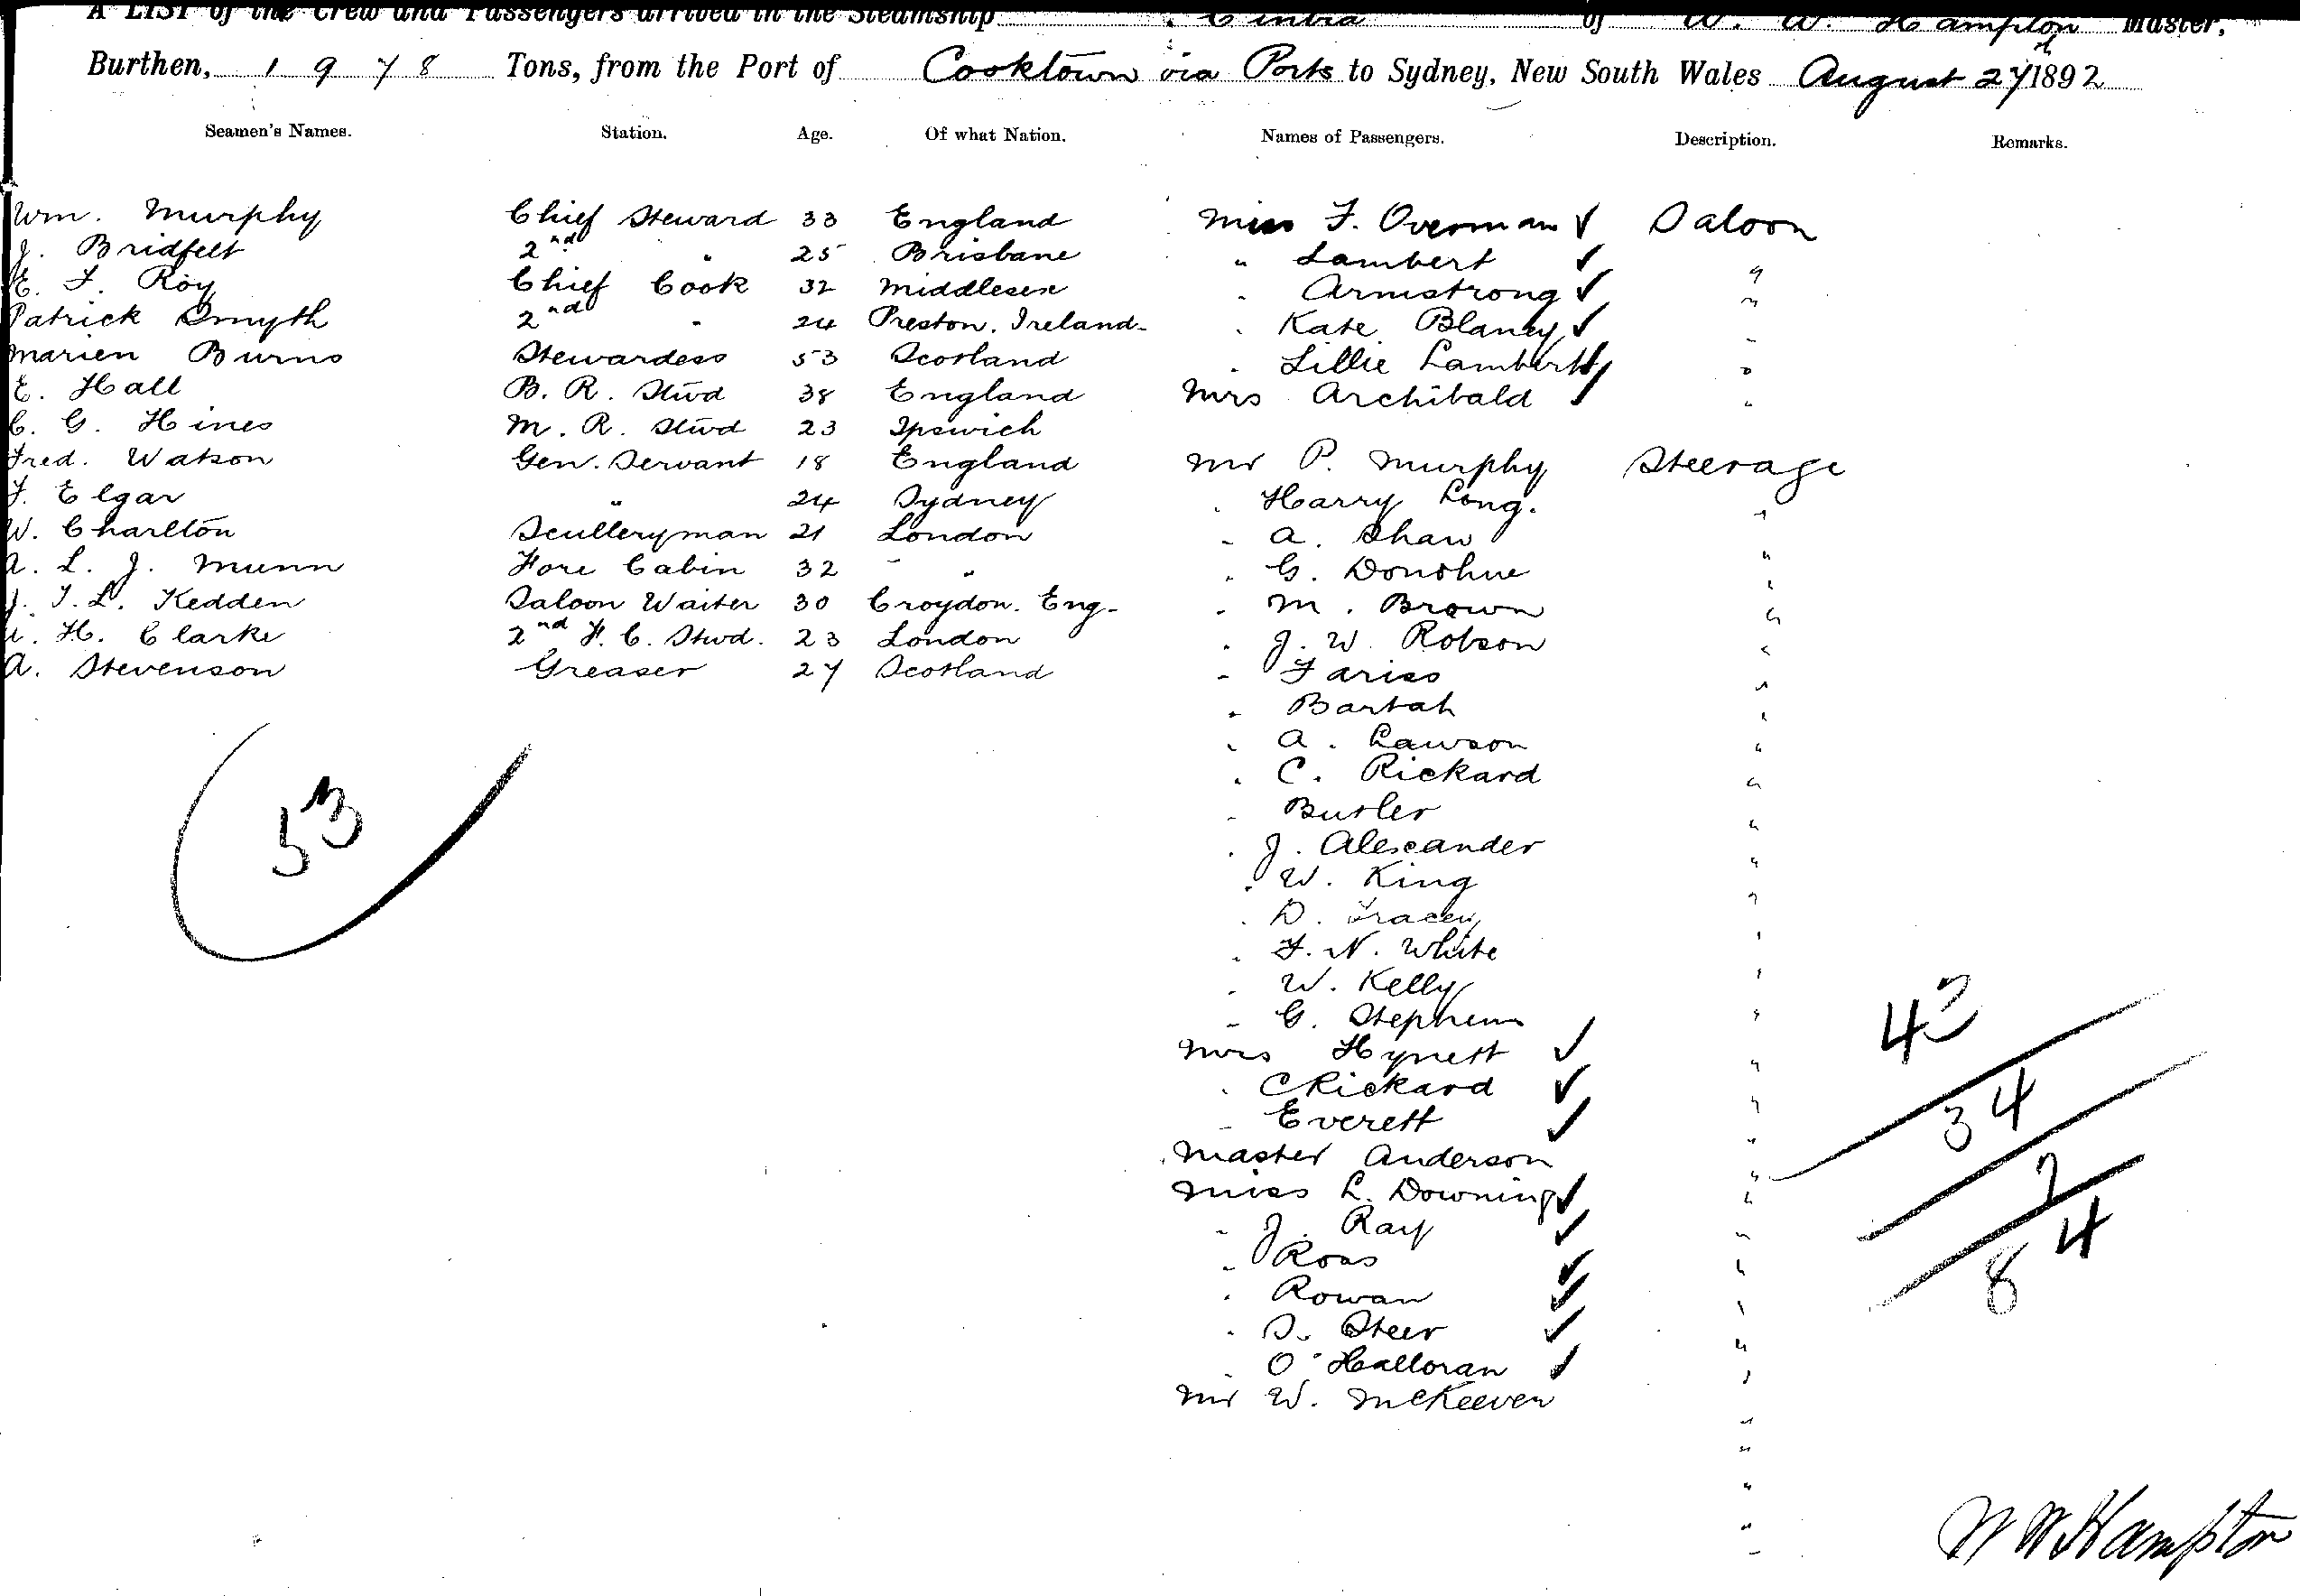 A LIST of the Crew and Passengers arrived in the Steamship Cintra of W. W. Hampton Master,
Burthen, 1978 Tons, from the Port of Cooktown via Ports to Sydney, New South Wales August 27th 1892
Seamen's Names. Station. Age. Of what Nation. Names of Passengers. Description. Remarks.
Wm. Murphy Chief Steward 33 England Miss F. Overman ✓ Saloon
J. Bridfelt 2nd " 25 Brisbane " Lambert ✓ "
E. F. Roy Chief Cook 32 Middlesex " Armstrong ✓ "
Patrick Smyth 2nd " 24 Preston. Ireland- " Kate Blaney ✓ "
Marien Burns Stewardess 53 Scotland " Lillie Lambert ✓ "
E. Hall B. R. Stwd 38 England Mrs Archibald ✓ "
C. G. Hines M. R. Stwd 23 Ipswich
Fred. Watson Gen. Servant 18 England Mr P. Murphy Steerage
F. Elgar " 24 Sydney " Harry Long. "
W. Charlton Sculleryman 21 London " A. Shaw "
A. L. J. Munn Fore Cabin 32 " " G. Donohue "
J. T. L. Kedden Saloon Waiter 30 Croydon. Eng- " M. Brown "
H. Clarke 2nd F. C. Stwd. 23 London " J. W. Robson "
A. Stevenson Greaser 27 Scotland " Fariss "
" Bartah "
" A. Lawson "
" C. Rickard "
" Butler "
" J. Alexander "
" W. King "
" D. Tracey "
" F. N. White "
" W. Kelly "
" G. Stephens "
Mrs Hynett ✓ "
" C Rickard ✓ "
" Everett ✓ "
Master Anderson "
Miss L. Downing ✓ "
" J. Ray ✓ "
" Ross ✓ "
" Rowan ✓ "
" S. Steer ✓ "
" O'Halloran ✓ "
Mr W. McKeever "
53
43
34
7
84
W W Hampton